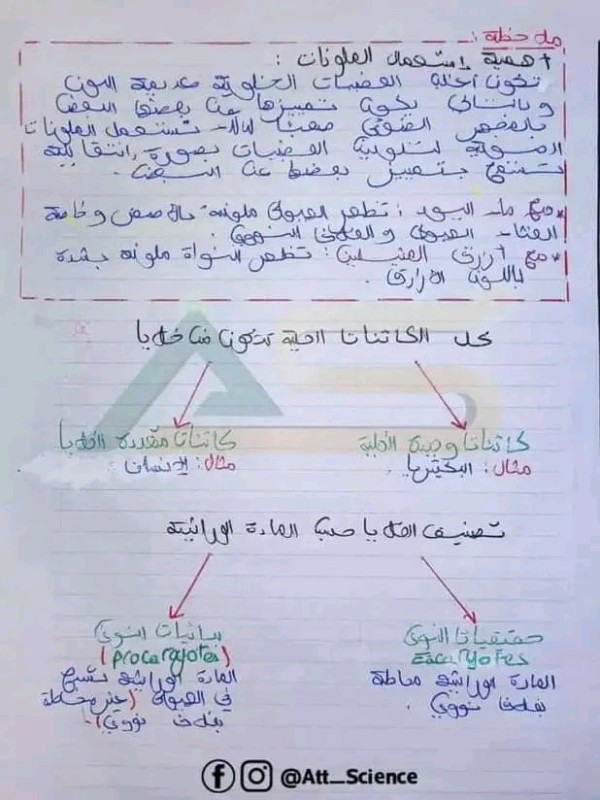 ملاحظة :
أهمية إستعمال الملونات :
تكون أغلب العضيات الخلوية عديمة اللون
وبالتالي يكون تمييزها عن بعضها البعض
بالمجهر الضوئي صعبا لذلك تستعمل الملونات
لتلوين العضيات بصورة انتقائية
تسمح بتمييز بعضها عن البعض .
* مع ماء اليود : تظهر الهيولى ملونة بالأصفر وخاصة
الغشاء الهيولي و الغلاف النووي .
* مع أزرق الميثيلين : تظهر النواة ملونة بشدة
باللون الأزرق .
كل الكائنات الحية تتكون من خلايا
كائنات وحيدة الخلية
مثال : البكتيريا .
كائنات متعددة الخلايا
مثال : الإنسان .
تصنيف الخلايا حسب المادة الوراثية
حقيقيات النوى
Eucaryotes
المادة الوراثية محاطة
بغلاف نووي .
بدائيات النوى
(procaryotes)
المادة الوراثية تسبح
في الهيولى (غير محاطة
بغلاف نووي) .
@Att_Science